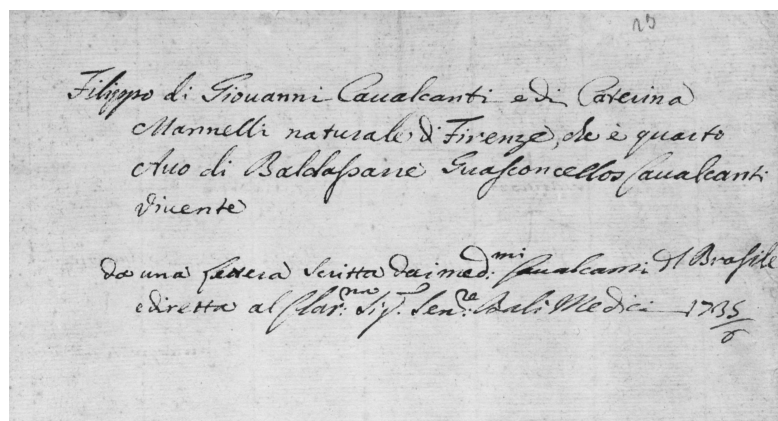 23
Filippo di Giovanni Caualcanti e di Caterina
Mannelli naturale di Firenze, che è quarto
Auo di Baldassarre Guasconcellos Caualcanti
viuente
da una lettera scritta dai med.mi Caualcanti del Brasile
e diretta al Clar.mo Sig. Sen.re Balì Medici 1735/6